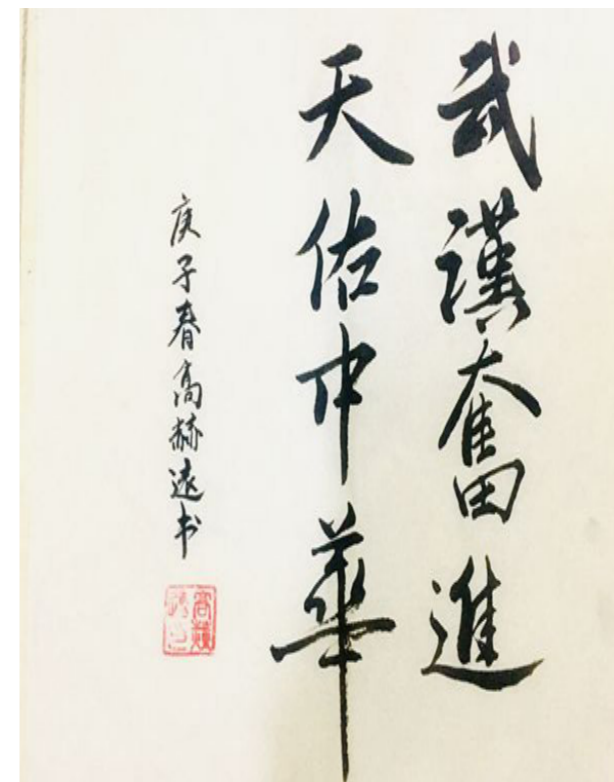 武漢奮進
天佑中華
庚子春高赫遠书